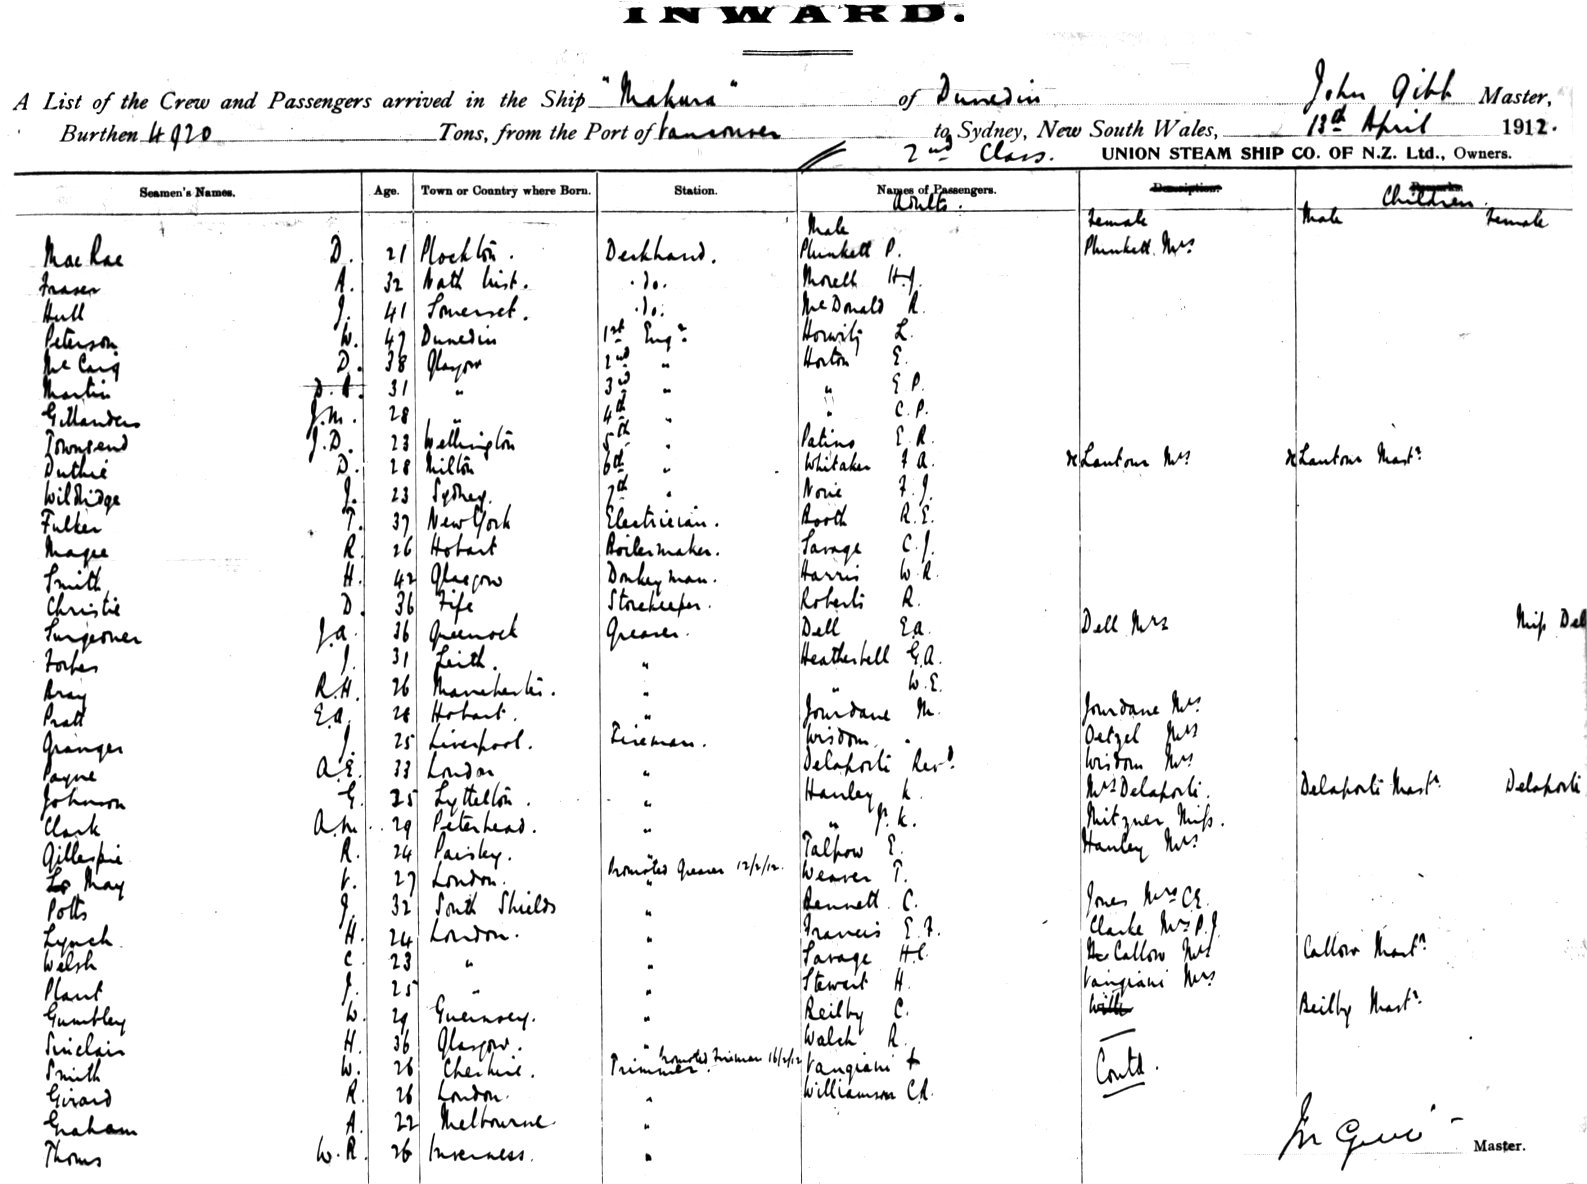 INWARD.
A List of the Crew and Passengers arrived in the Ship "Makura" of Dunedin John Gibb Master,
Burthen 4920 Tons, from the Port of Vancouver to Sydney, New South Wales, 13th April 1912.
2nd Class. UNION STEAM SHIP CO. OF N.Z. Ltd., Owners.
Seamen's Names. Age. Town or Country where Born. Station. Names of Passengers. Description. Remarks
Adults. Children.
Male Female Male Female
MacRae D. 21 Plockton. Deckhand. Plunkett P. Plunkett Mrs
Fraser A. 32 North Uist. .do. Morell H.J.
Hull J. 41 Somerset. .do. McDonald R.
Peterson W. 47 Dunedin 1st Engr. Horwitz L.
McCaig D. 38 Glasgow 2nd " Horton E.
Martin D.A. 31 " 3rd " " E P.
Gillanders J.M. 28 " 4th " " C.P.
Townsend J.D. 23 Wellington 5th " Patino E R.
Duthie D. 28 Milton 6th " Whitaker F A. x Lantour Mrs x Lantour Mastr
Wildridge J. 23 Sydney. 7th " Novie F.J.
Fulker T. 37 New York Electrician. Booth R.E.
Magee R. 26 Hobart Boilermaker. Savage C.J.
Smith H. 42 Glasgow Donkeyman. Harris W.R.
Christie D. 36 Fife Storekeeper. Roberts R.
Surgeoner J.A. 36 Greenock Greaser. Dell E.A. Dell Mrs Miss Dell
Forbes J. 31 Leith. " Heatherbell G.A.
Bray R.H. 26 Manchester. " " W.E.
Pratt E.A. 28 Hobart. " Jourdane M. Jourdane Mrs
Granger J. 25 Liverpool. Fireman. Wisdom. Oetzel Mrs
Payne A.E. 33 London " Delaporte Revd. Wisdom Mrs
Johnson G. 25 Lyttelton. " Hanley K. Mrs Delaporte. Delaporte Mastr Delaporte
Clark A.M. 29 Peterhead. " " J.K. Mitzner Miss.
Gillespie R. 24 Paisley. " Talpow E. Hanley Mrs
Le May V. 27 London. Promoted Greaser 12/2/12. Weaver T.
Potts J. 32 South Shields " Bennett C. Jones Mrs C.E.
Lynch H. 24 London. " Francis E.F. Clarke Mrs P.J.
Welsh C. 23 " " Savage H.C. Callow Mrs Callow Mastr
Plant J. 25 " " Stewart H. Vangiani Mrs
Gumbley W. 29 Guernsey. " Reilby C. Beilby Mastr
Sinclair H. 36 Glasgow. " Walch R.
Smith W. 26 Cheshire. Trimmer. Promoted Fireman 16/2/12 Vangiani Contd.
Girard R. 26 London. " Williamson C.R.
Graham A. 22 Melbourne. "
Thoms W.R. 26 Inverness. " Master.